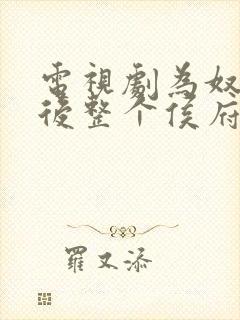 電視劇為奴
後整个侯府
羅又添